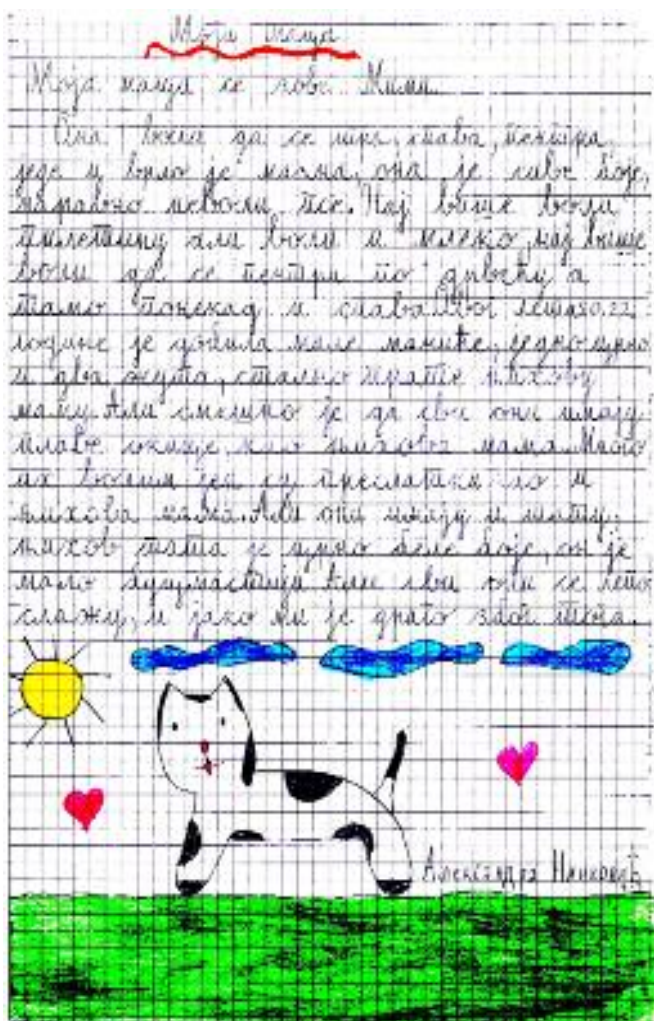 Моја маца
Моја маца се зове Мими.
Она воли да се игра, спава, пентра,
једе и врло је мазна, она је сиве боје,
наравно неволи псе. Нај више воли
пилетину али воли и млеко, нај више
воли да се пентра по дрвећу а
тамо понекад и спава. Овог лета 20.22.
године је добила мале мачиће, једно црно
и два жута, стално прате њихову
маму. Али смешно је да сви они имају
плаве окице, као њихова мама. Много
их волим јер су преслатки ко и
њихова мама. Али они имају и тату,
њихов тата је црно беле боје, он је
мало Али сви они се лепо
слажу, и јако ми је драго због тога.
Александра